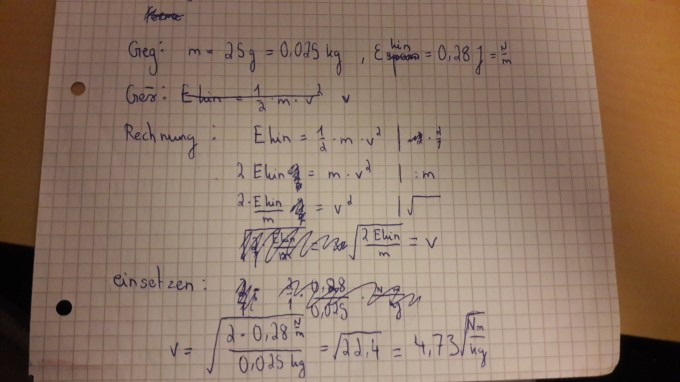 Geg: m = 25g = 0,025 kg , E kin = 0,28 J = N/m
Ges: E kin = 1/2 · m · v² v
Rechnung : E kin = 1/2 · m · v² | · 2/1
2 E kin = m · v² | : m
2 · E kin / m = v² | √
√(2 E kin / m) = v
einsetzen :
v = √(2 · 0,28 N/m / 0,025 kg) = √22,4 = 4,73 √(Nm/kg)